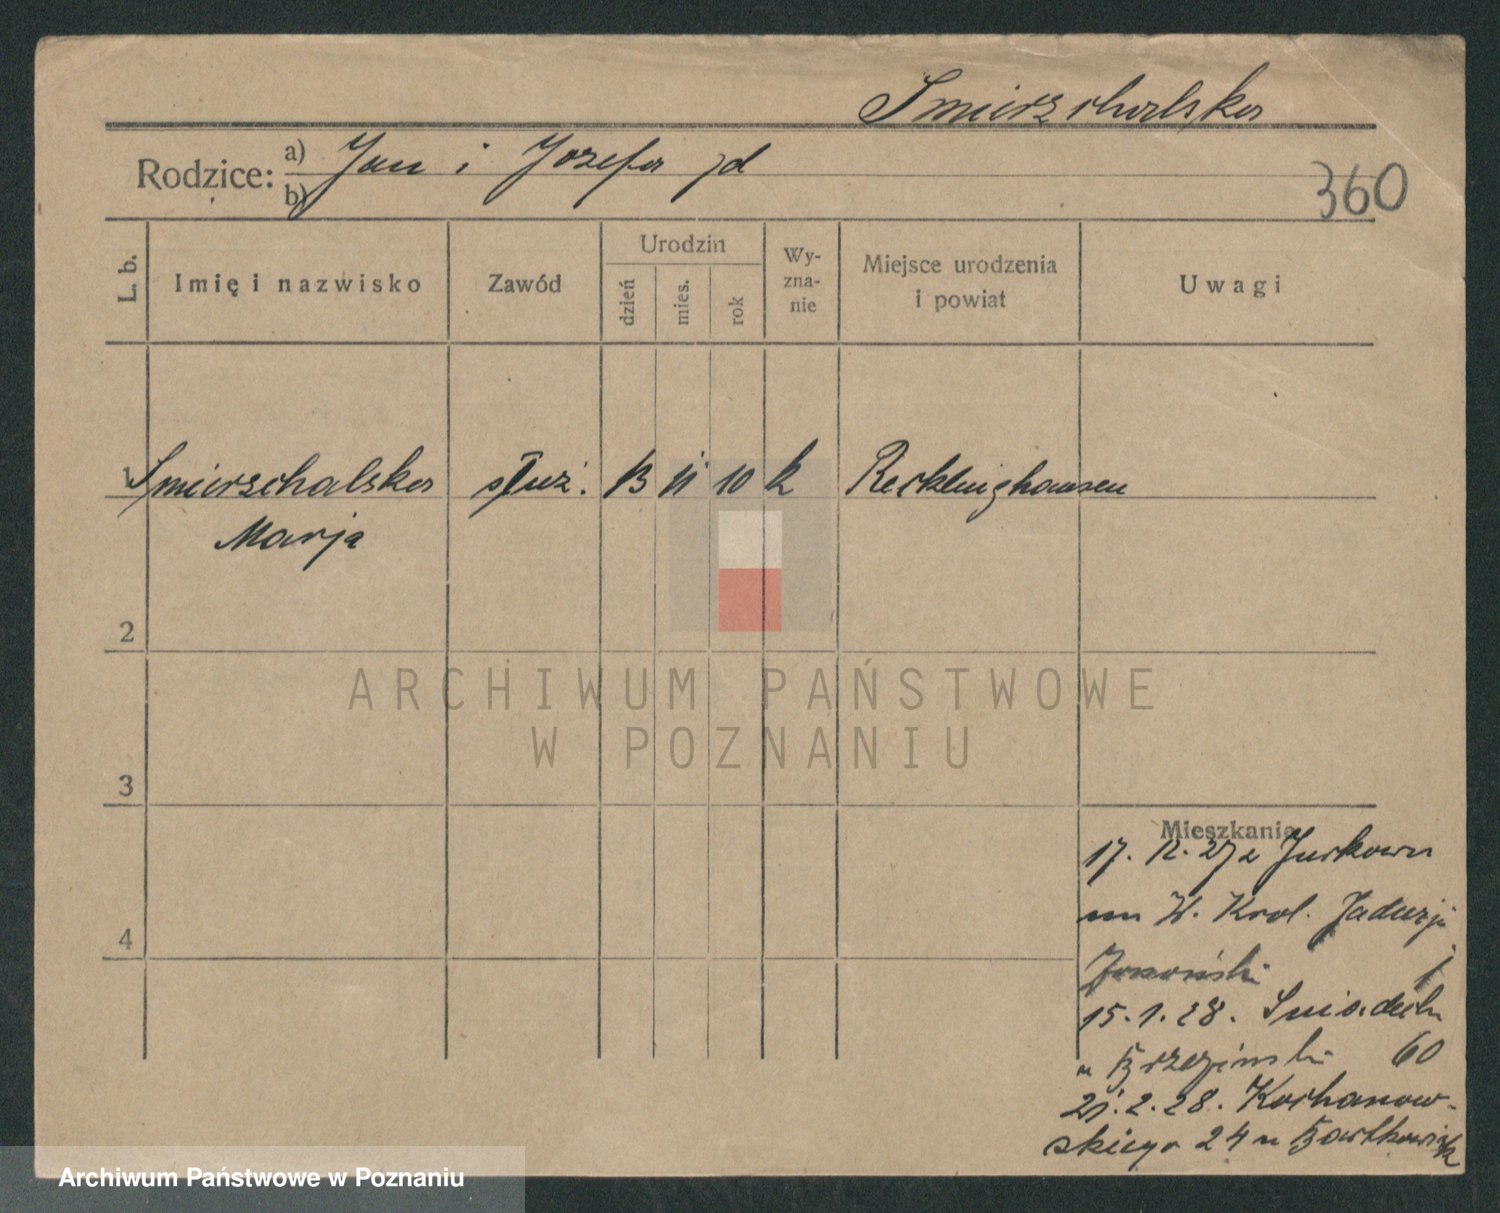 Smierzchalska
Rodzice: a) Jan i Jozefa jd
b)
360
L. b.
Imię i nazwisko
Zawód
Urodzin
dzień
mies.
rok
Wy-
zna-
nie
Miejsce urodzenia
i powiat
Uwagi
1 Smierzchalska służ. 13 11 10 k Recklinghausen
Marja
2
3
4
Mieszkania
17. 12. 27 z Jurkowa
W. Krol. Jadwigi
1
15.1.28. Sniadeck
u Brzezinski 60
21.2.28. Kochanow-
skiego 24 u Bartkowiak
ARCHIWUM PAŃSTWOWE
W POZNANIU
Archiwum Państwowe w Poznaniu